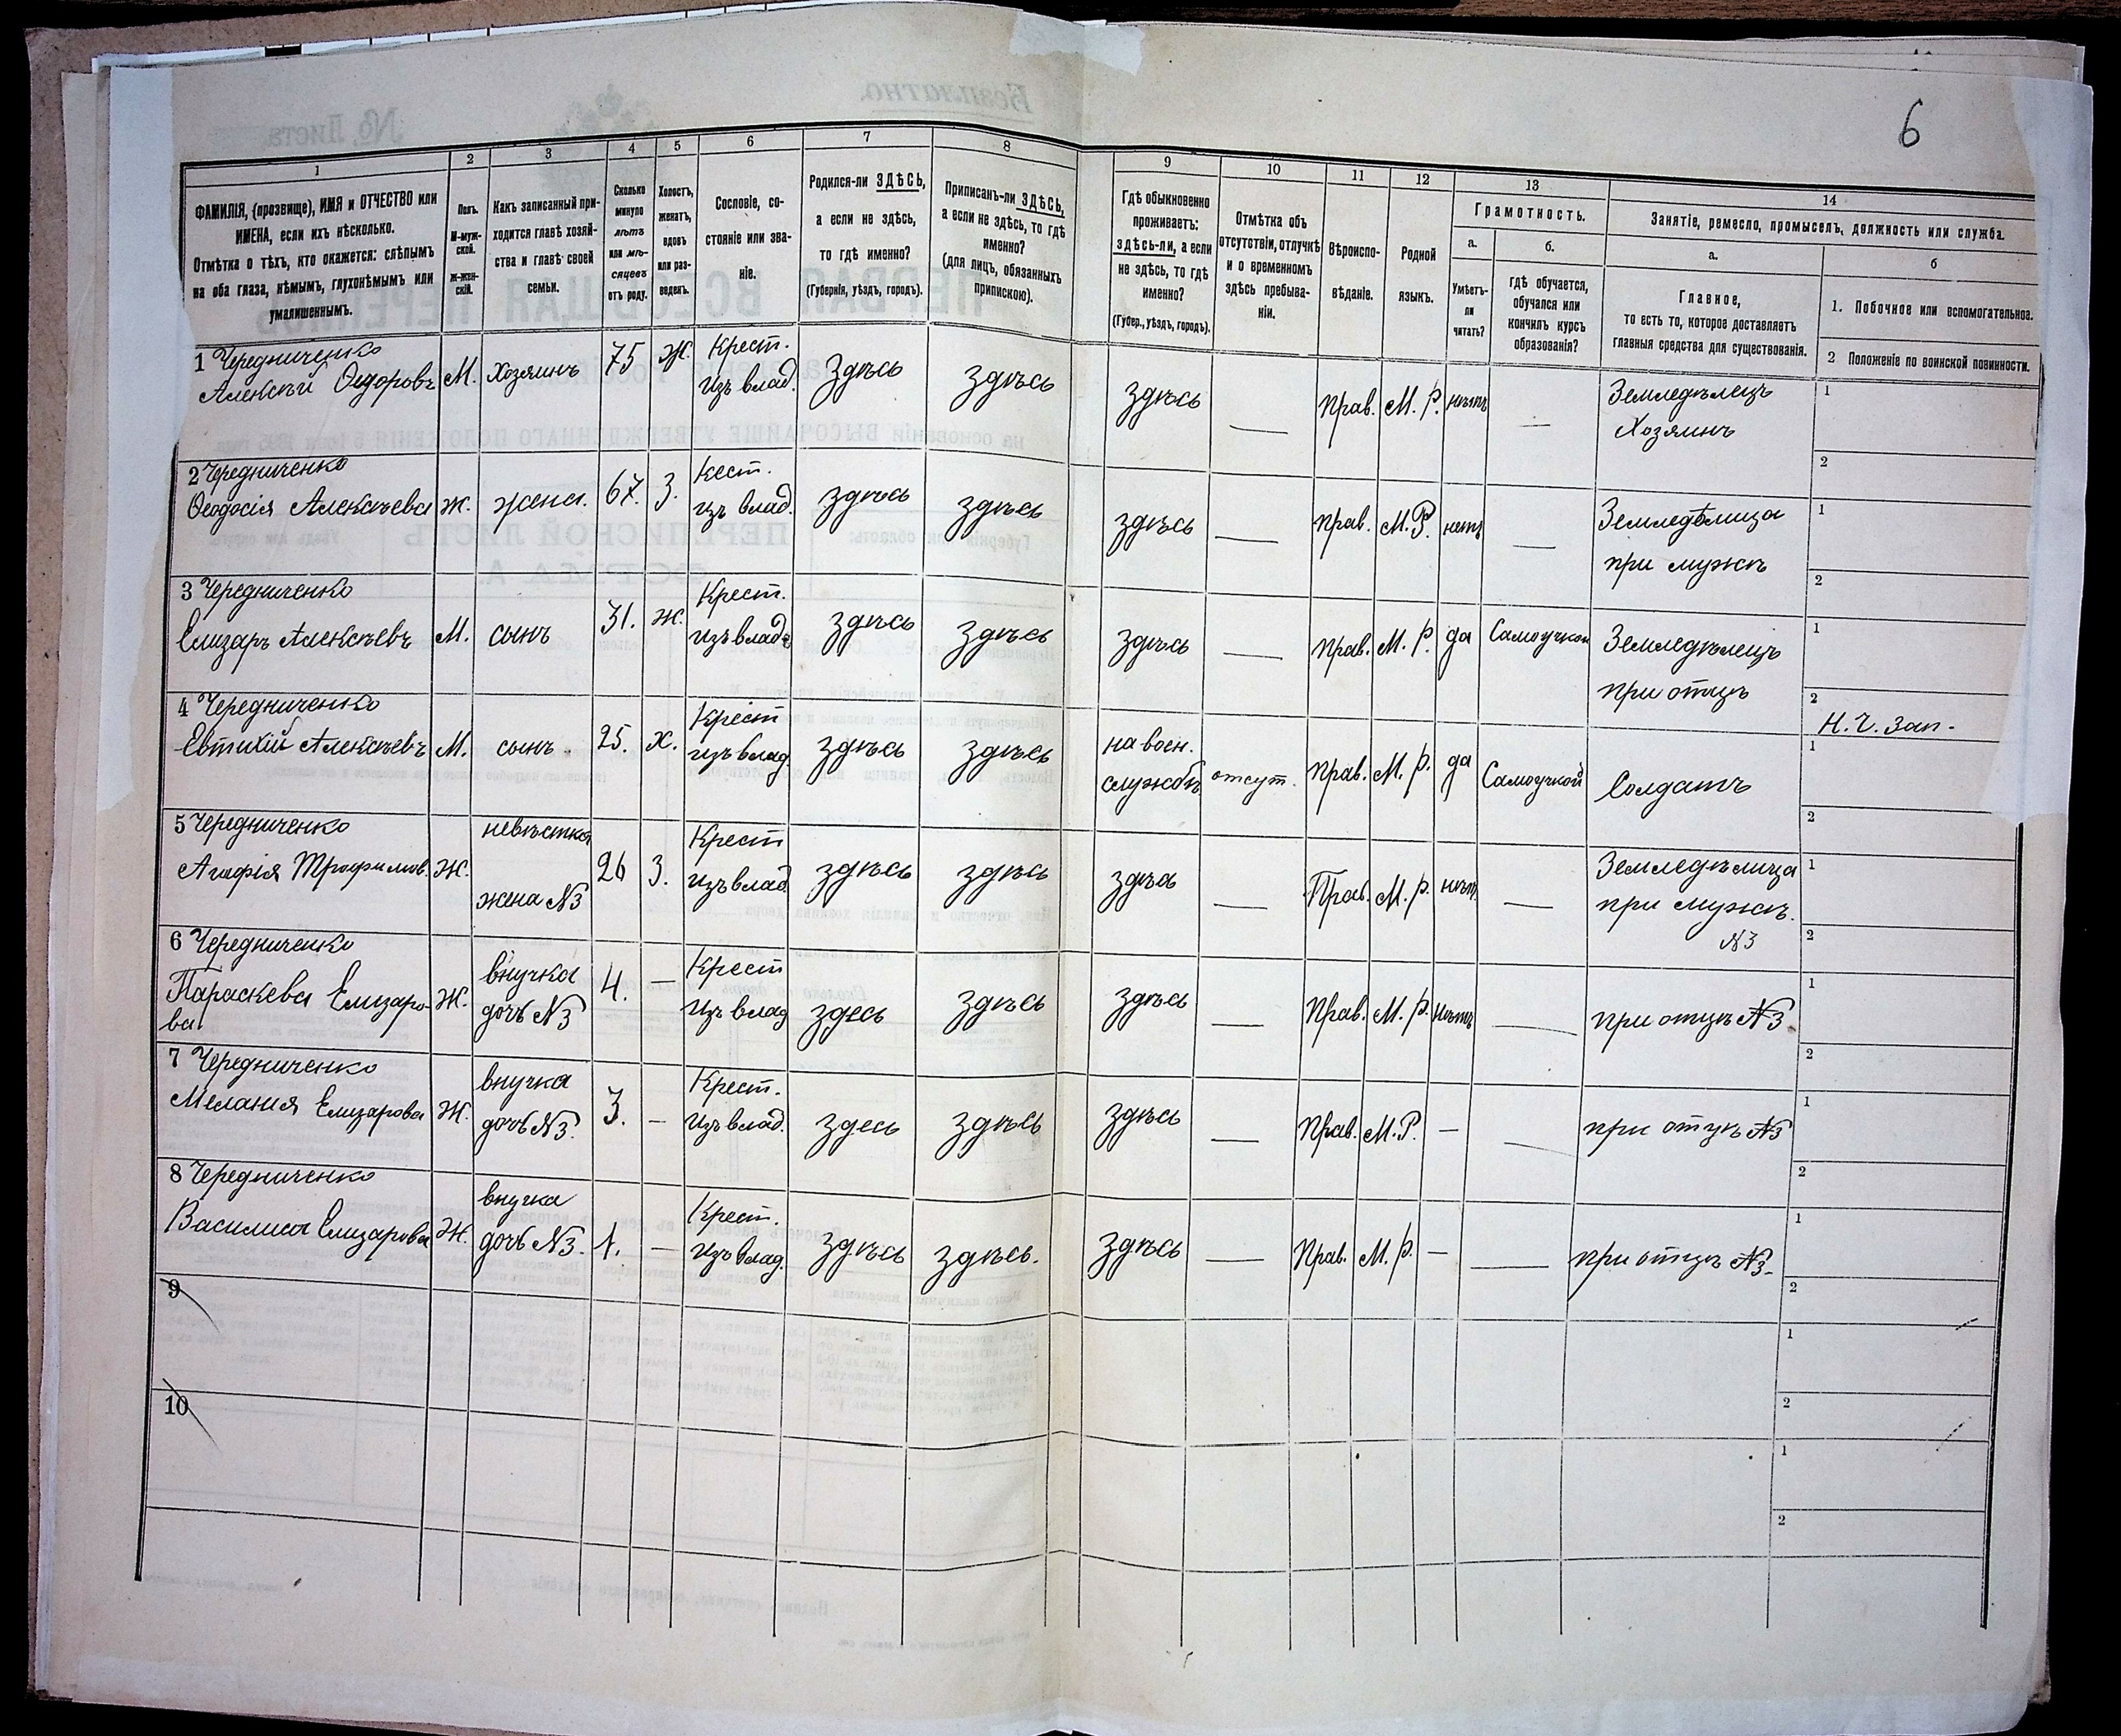 6
1
2
3
4
5
6
7
8
9
10
11
12
13
14
ФАМИЛІЯ, (прозвище), ИМЯ и ОТЧЕСТВО или
ИМЕНА, если ихъ нѣсколько.
Отмѣтка о тѣхъ, кто окажется: слѣпымъ
на оба глаза, нѣмымъ, глухонѣмымъ или
умалишеннымъ.
Полъ.
М-муж-
ской.
Ж-жен-
скій.
Какъ записанный при-
ходится главѣ хозяй-
ства и главѣ своей
семьи.
Сколько
минуло
лѣтъ
или мѣ-
сяцевъ
отъ роду.
Холостъ,
женатъ,
вдовъ
или раз-
веденъ.
Сословіе, со-
стояніе или зва-
ніе.
Родился-ли ЗДѢСЬ,
а если не здѣсь,
то гдѣ именно?
(Губернія, уѣздъ, городъ).
Приписанъ-ли ЗДѢСЬ,
а если не здѣсь, то гдѣ
именно?
(для лицъ, обязанныхъ
припискою).
Гдѣ обыкновенно
проживаетъ:
здѣсь-ли, а если
не здѣсь, то гдѣ
именно?
(Губер., уѣздъ, городъ).
Отмѣтка объ
отсутствіи, отлучкѣ
и о временномъ
здѣсь пребыва-
ніи.
Вѣроиспо-
вѣданіе.
Родной
языкъ.
Грамотность.
а.
Умѣетъ-
ли
читать?
б.
гдѣ обучается,
обучался или
кончилъ курсъ
образованія?
Занятіе, ремесло, промыселъ, должность или служба.
а.
Главное,
то есть то, которое доставляетъ
главныя средства для существованія.
б
1. Побочное или вспомогательное.
2 Положеніе по воинской повинности.
1 Чередниченко
Алексѣй Ѳедоровъ М. Хозяинъ 75 Ж. Крест.
изъ влад. Здѣсь здѣсь здѣсь — прав. М. р. нѣтъ — Земледѣлецъ
Хозяинъ
1
2
2 Чередниченко
Ѳеодосія Алексѣева Ж. жена. 67. З. Кест.
изъ влад. здѣсь здѣсь здѣсь — прав. М. Р. нетъ — Земледѣлица
при мужѣ
1
2
3 Чередниченко
Елизаръ Алексѣевъ М. сынъ 31. Ж. Крест.
изъ влад. здѣсь здѣсь здѣсь — прав. М. р. да Самоучкой Земледѣлецъ
при отцѣ
1
2
Н. Ч. Зап.
4 Чередниченко
Евтихій Алексѣевъ М. сынъ. 25. Х. Крест
изъ влад здѣсь здѣсь на воен.
службѣ отсут. прав. М. р. да Самоучкой Солдатъ
1
2
5 Чередниченко
Агафія Трофимов. Ж. невѣстка
жена №3 26 З. Крест
изъ влад здѣсь здѣсь здѣсь — Прав. М. р. нѣтъ — Земледѣлица
при мужѣ.
№3
1
2
6 Чередниченко
Параскева Елизаро-
ва Ж. внучка
дочь №3 4. — Крест
изъ влад здесь здѣсь здѣсь — Прав. М. р. нѣтъ — при отцѣ №3
1
2
7 Чередниченко
Мелания Елизарова Ж. внучка
дочь №3. 3. — Крест.
изъ влад. здесь здѣсь здѣсь — Прав. М. Р. — — при отцѣ №3
1
2
8 Чередниченко
Василиса Елизарова Ж. внучка
дочь №3. 1. — Крест.
изъ влад. здѣсь здѣсь. здѣсь — Прав. М. р. — — при отцѣ №3.
1
2
9
1
2
10
1
2